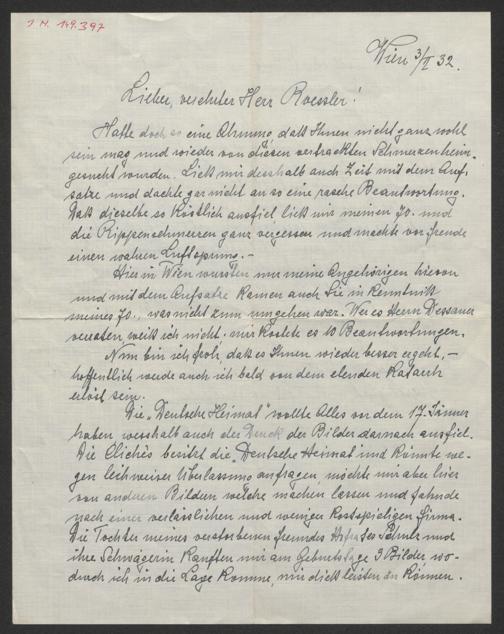 J.N. 149.397
Wien 3/II 32.
Lieber, verehrter Herr Roessler!
Hatte doch so eine Ahnung, daß Ihnen nicht ganz wohl
sein mag und wieder von diesen vertrackten Schmerzen heim-
gesucht wurden. Ließ mir desshalb auch Zeit mit dem Auf-
satze und dachte gar nicht an so eine rasche Beantwortung.
Daß dieselbe so köstlich ausfiel ließ mir meinen 70. und
die Rippenschmerzen ganz vergessen und machte vor Freude
einen wahren Luftsprung. –
Hier in Wien wussten nur meine Angehörigen hievon
und mit dem Aufsatze kamen auch Sie in Kenntniß
meines 70., was nicht zum umgehen war. Wer es Herrn Dessauer
verraten, weiß ich nicht. mir kostete es 10 Beantwortungen.
Nun bin ich froh, daß es Ihnen wieder besser ergeht, –
hoffentlich werde auch ich bald von dem elenden Katarrh
erlöst sein.
Die „Deutsche Heimat" wollte Alles vor dem 17. Jänner
haben wesshalb auch der Druck der Bilder darnach ausfiel.
Die Clichés besitzt die „Deutsche Heimat und könnte we-
gen leihweiser Überlassung anfragen, möchte mir aber hier
von anderen Bildern welche machen lassen und fahnde
nach einer verlässlichen und weniger kostspieligen Firma.
Die Tochter meines verstorbenen Freundes und
ihre Schwägerin kauften mir am Geburtstage 3 Bilder wo-
durch ich in die Lage komme, mir dieß leisten zu können.